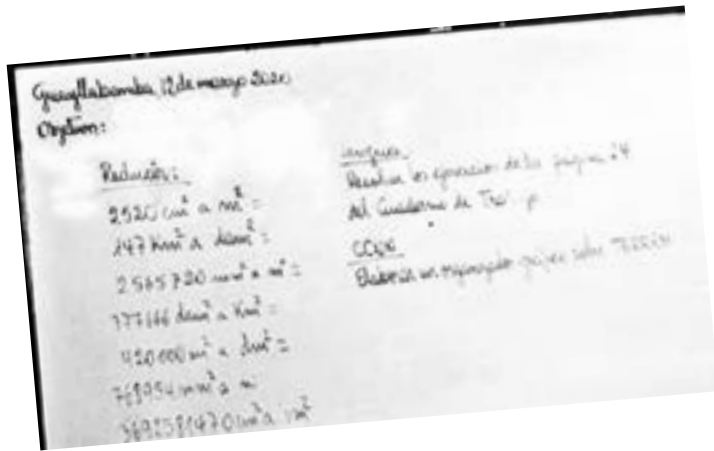 Guayllabamba, 12 de marzo 2020
Objetivo:
Reducir:
2520 cm² a m² =
147 Km² a dam² =
2565720 mm² a m² =
777166 dam² a Km² =
420000 m² a dm² =
768954 mm² a m
3692581470 cm² a m²
Lengua
Resolver los ejercicios de la página 24
del Cuaderno de
Elaborar un organizador gráfico sobre